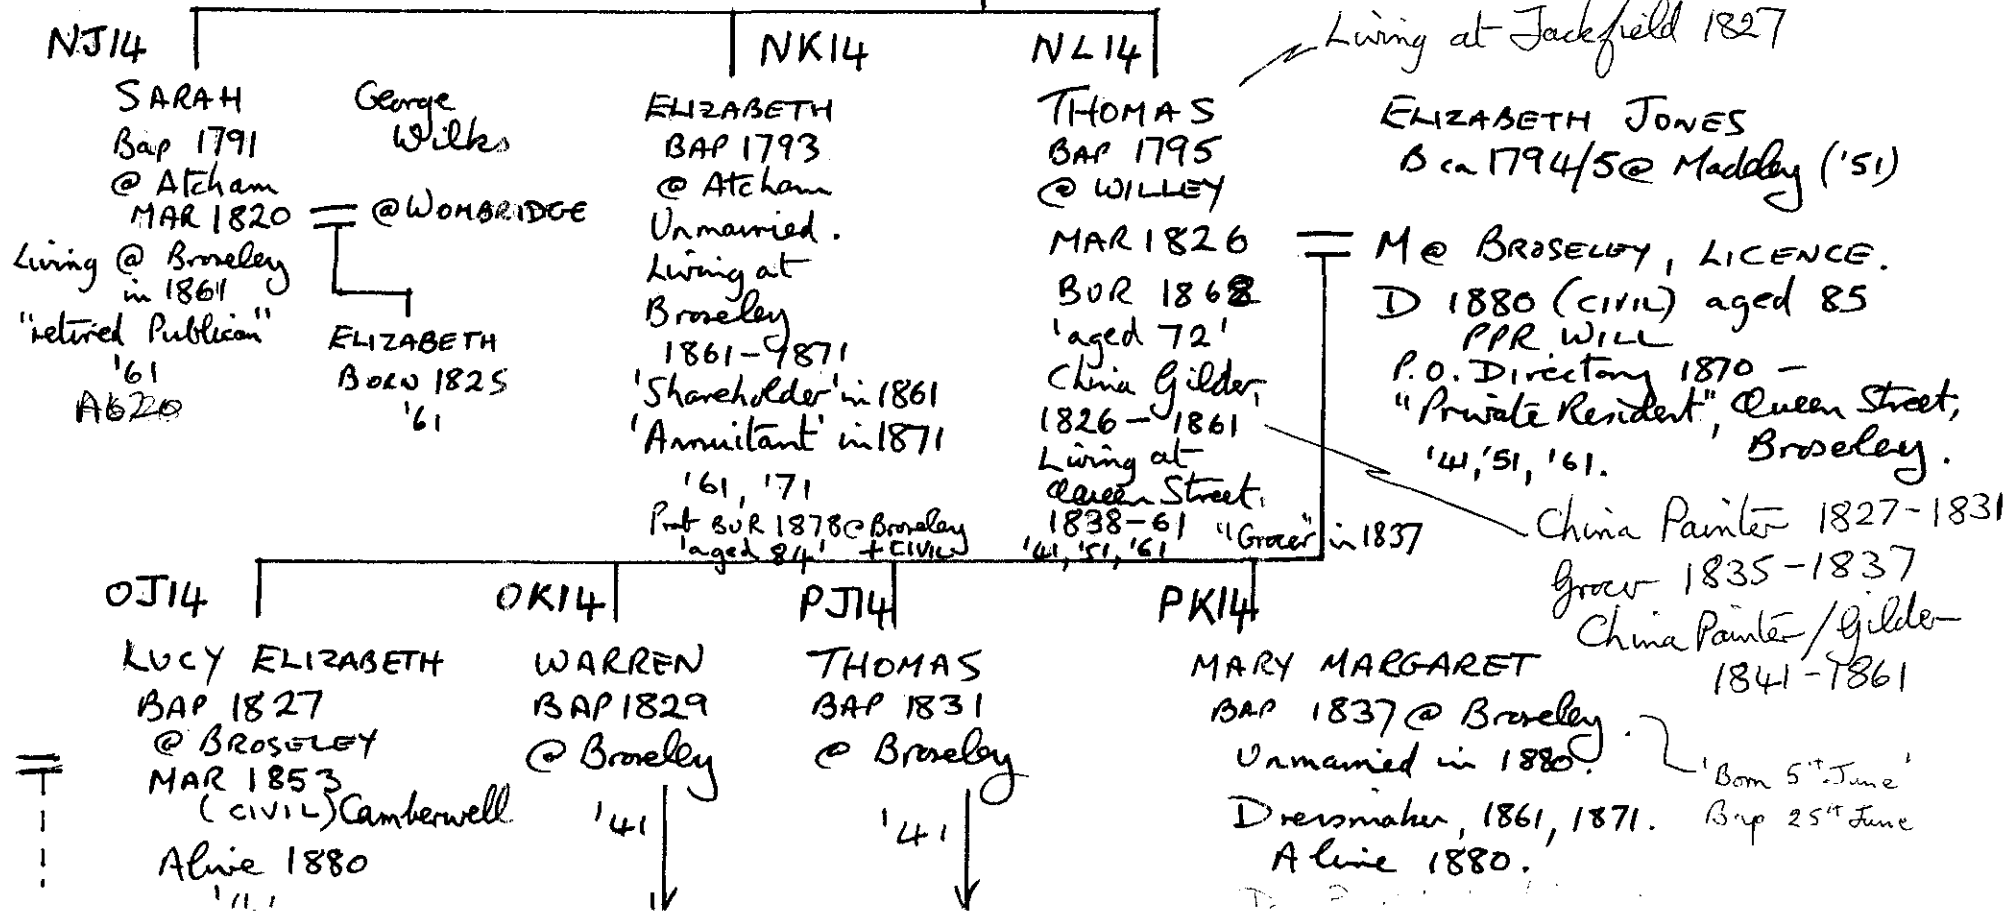 NJ14
SARAH
Bap 1791
@ Atcham
MAR 1820
Living @ Broseley
in 1861
"retired Publican"
'61
A620
George
Wilks
@ WOMBRIDGE
ELIZABETH
BORN 1825
'61
NK14
ELIZABETH
BAP 1793
@ Atcham
Unmarried.
Living at
Broseley
1861-1871
'Shareholder' in 1861
'Annuitant' in 1871
'61, '71
Prob BUR 1878 @ Broseley
'aged 84' + CIVIL
NL14
THOMAS
BAP 1795
@ WILLEY
MAR 1826
BUR 1868
'aged 72'
China Gilder,
1826-1861
Living at
Queen Street,
1838-61 "Grocer" in 1837
'41, '51, '61
Living at Jackfield 1827
ELIZABETH JONES
B ca 1794/5 @ Madeley ('51)
M @ BROSELEY, LICENCE.
D 1880 (CIVIL) aged 85
PPR WILL
P.O. Directory 1870 -
"Private Resident", Queen Street,
Broseley.
'41, '51, '61.
China Painter 1827-1831
Grocer 1835-1837
China Painter/Gilder
1841-1861
OJ14
LUCY ELIZABETH
BAP 1827
@ BROSELEY
MAR 1853
(CIVIL) Camberwell
Alive 1880
OK14
WARREN
BAP 1829
@ Broseley
'41
PJ14
THOMAS
BAP 1831
@ Broseley
'41
PK14
MARY MARGARET
BAP 1837 @ Broseley.
Unmarried in 1880.
Dressmaker, 1861, 1871.
Alive 1880.
'Born 5th June'
Bap 25th June